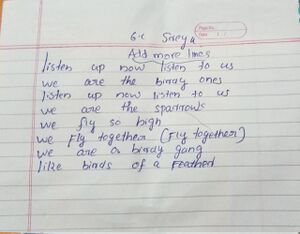 6-c Sreya
Add more lines
listen up now listen to us
we are the birdy ones
listen up now listen to us
we are the sparrows
we fly so high
we fly together (fly together)
we are a birdy gang
like birds of a feathed